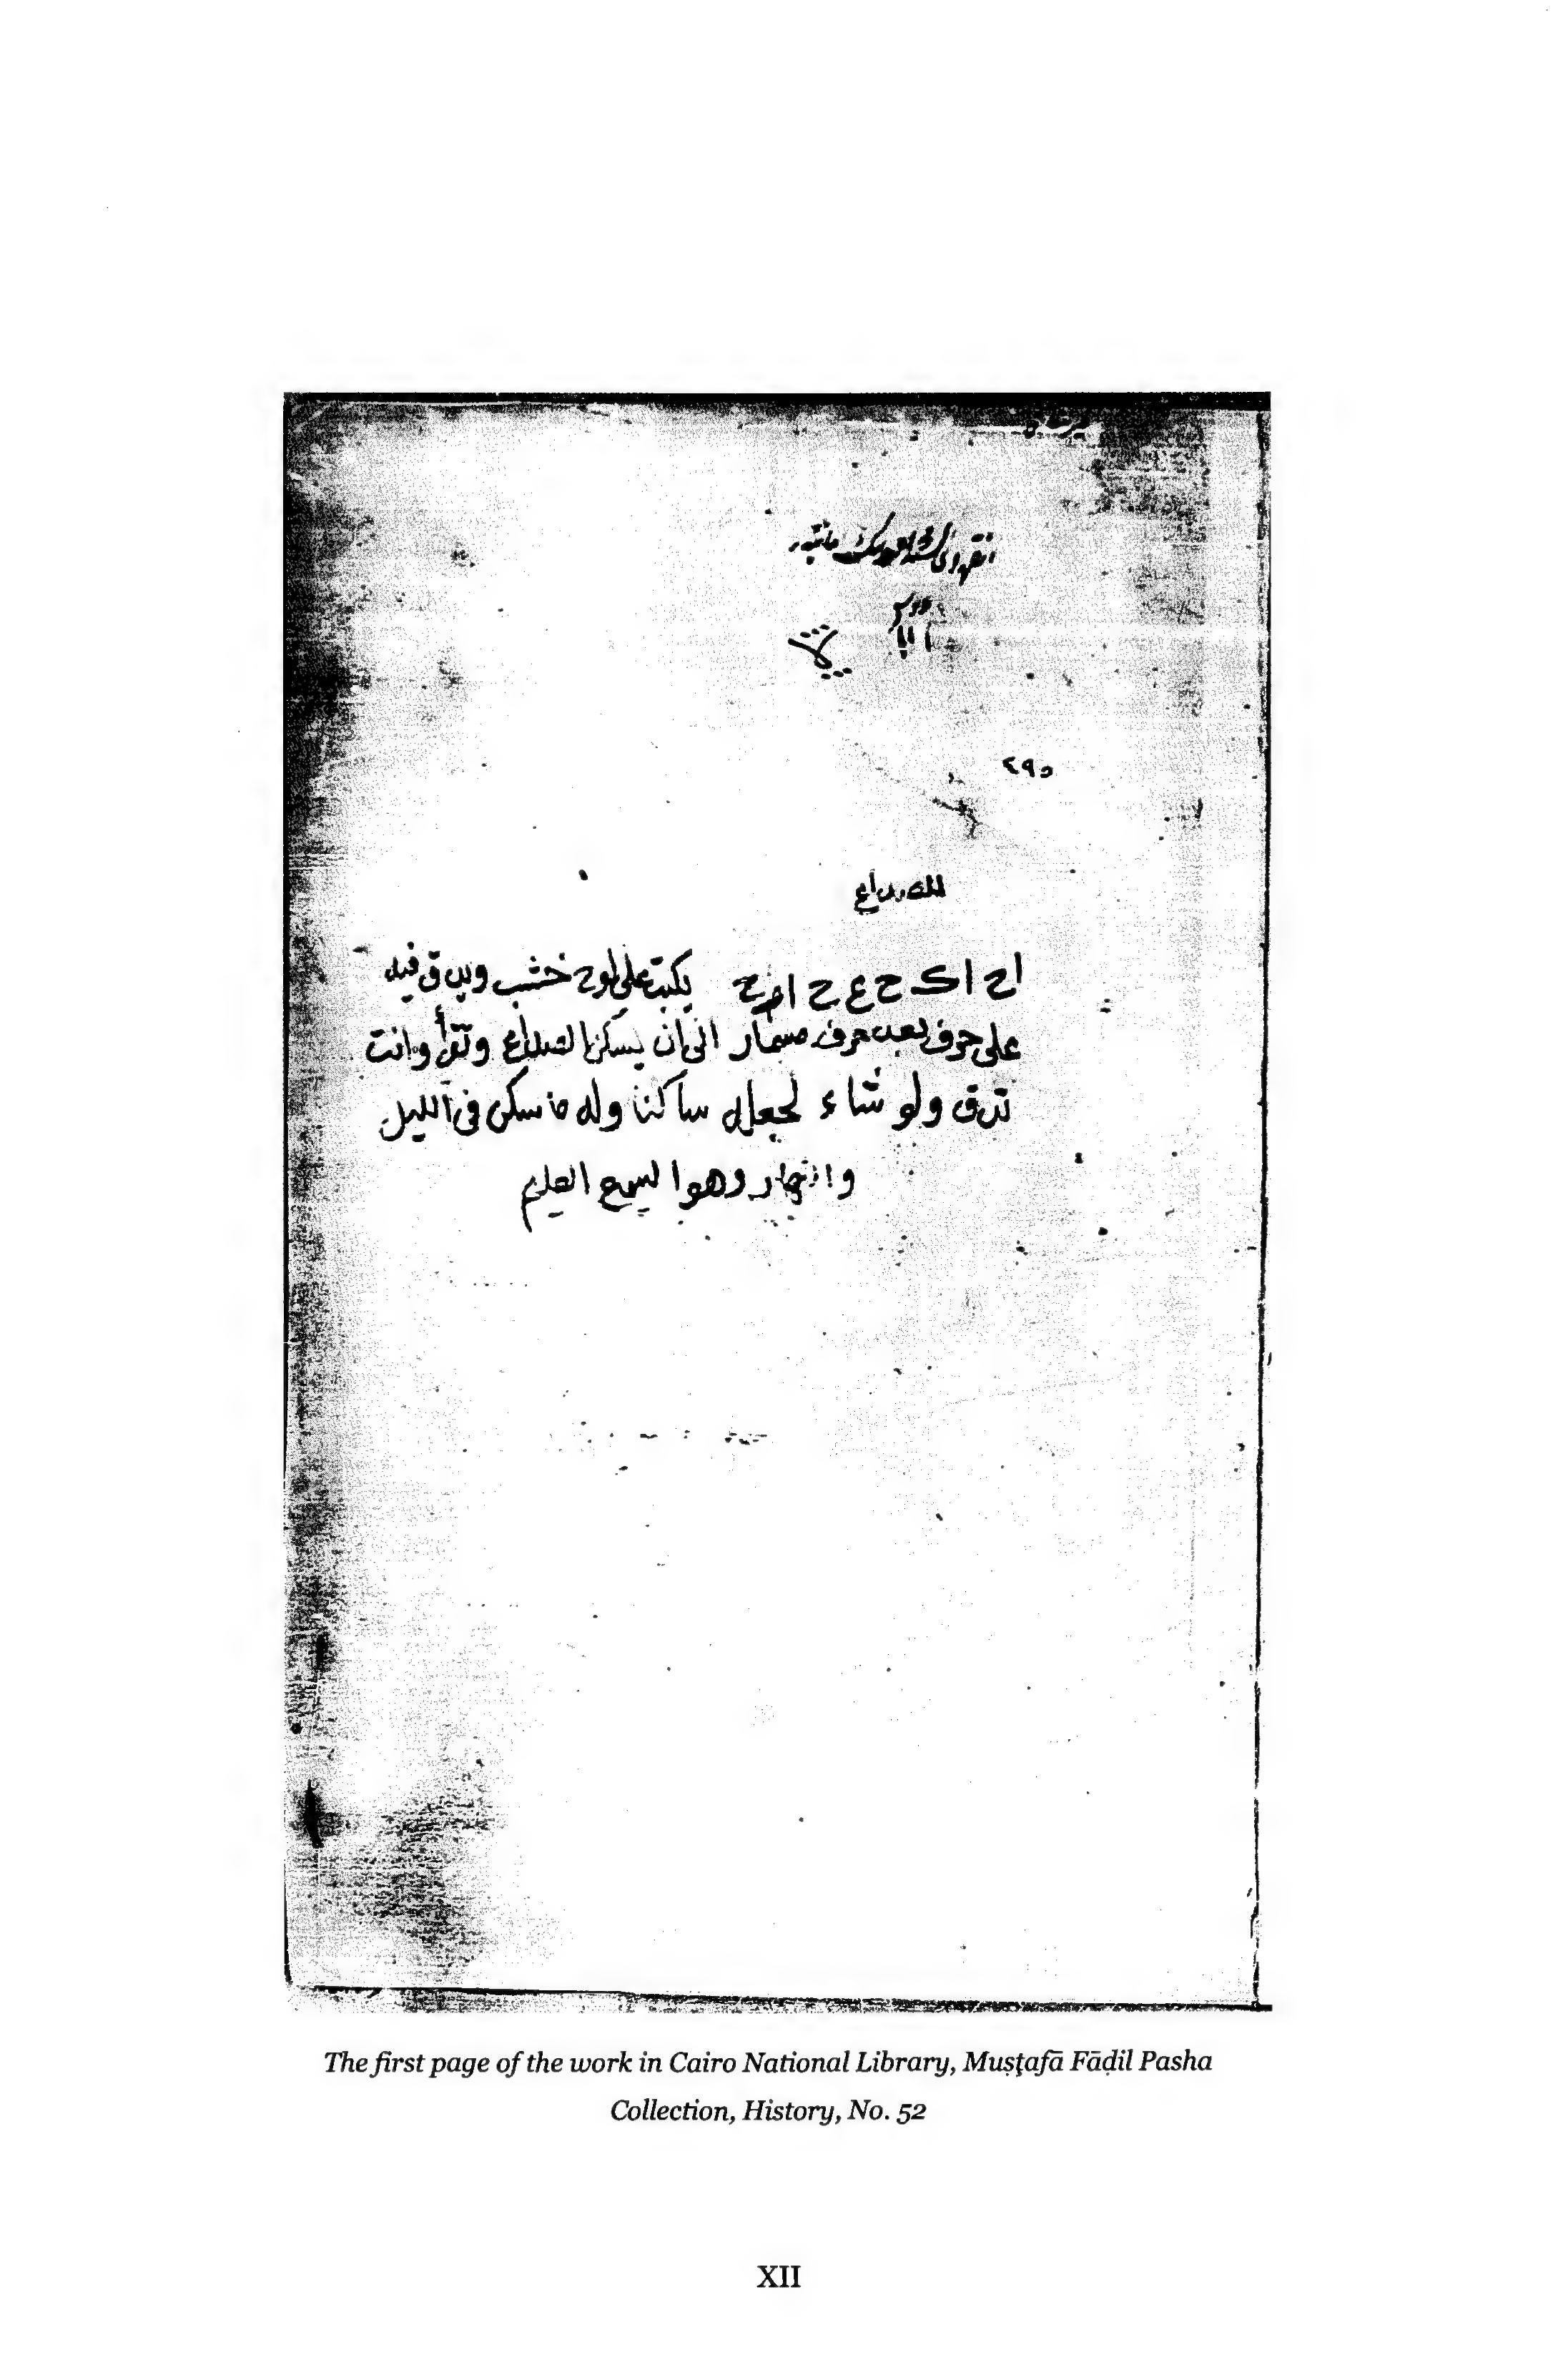 ٢٩٥
للصداع
اح اك ح ع ح ام ح يكتب على لوح خشب ويدق فيه
على حرف بعد حرف مسمار الى ان يسكن الصداع وتقرأ وانت
تدق ولو شاء لجعله ساكنا وله ما سكن في الليل
والنهار وهو السميع العليم
The first page of the work in Cairo National Library, Muṣṭafā Fāḍil Pasha
Collection, History, No. 52
XII